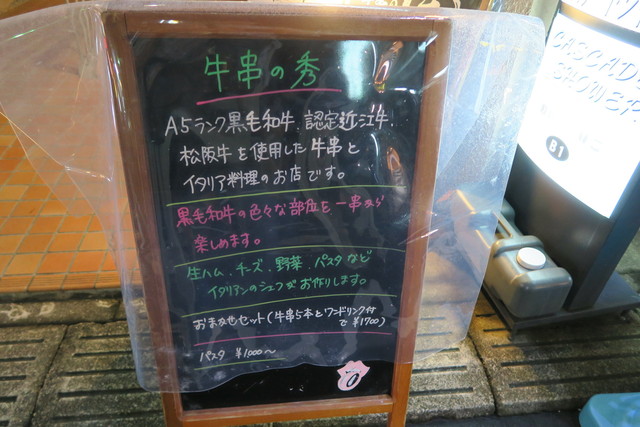 牛串の秀
A5ランク黒毛和牛、認定近江牛、
松阪牛を使用した牛串と
イタリア料理のお店です。
黒毛和牛の色々な部位を一串から
楽しめます。
生ハム、チーズ、野菜、パスタなど
イタリアンのシェフがお作りします。
おまかせセット(牛串5本とワンドリンク付
で ¥1700)
パスタ ¥1000〜
CASCADE
SHOWER
B1